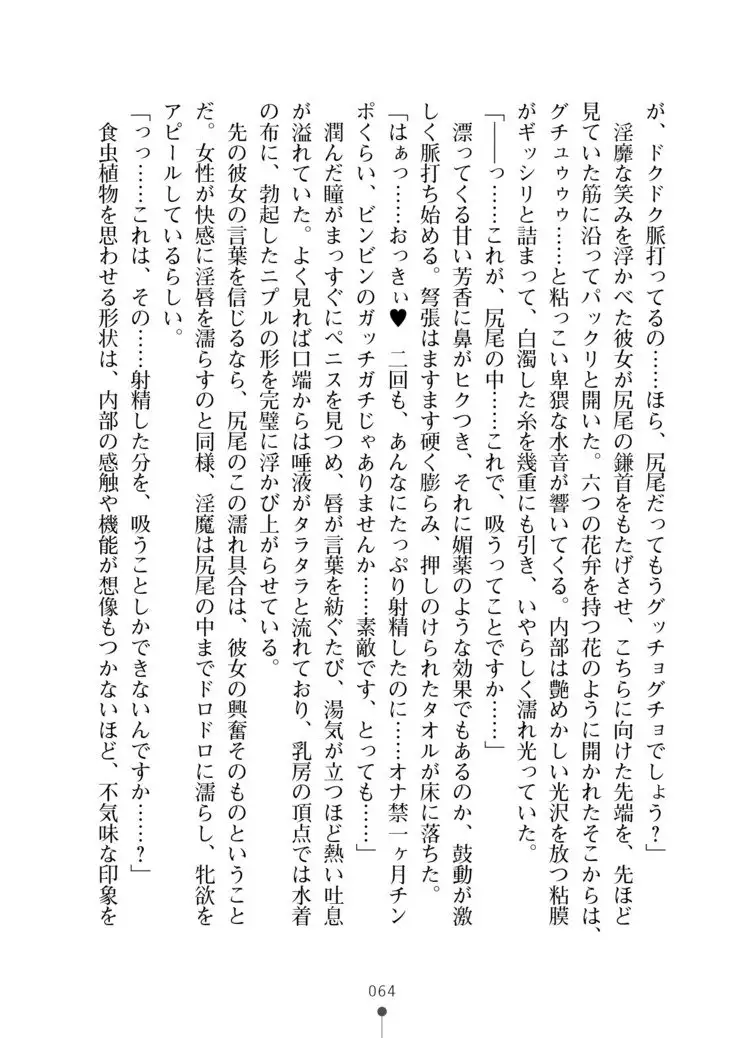 が、ドクドク脈打ってるの……ほら、尻尾だってもうグッチョグチョでしょう？」
　淫靡な笑みを浮かべた彼女が尻尾の鎌首をもたげさせ、こちらに向けた先端を、先ほど
見ていた筋に沿ってパックリと開いた。六つの花弁を持つ花のように開かれたそこからは、
グチュゥゥゥ……と粘っこい卑猥な水音が響いてくる。内部は艶めかしい光沢を放つ粘膜
がギッシリと詰まって、白濁した糸を幾重にも引き、いやらしく濡れ光っていた。
「――っ……これが、尻尾の中……これで、吸うってことですか……」
　漂ってくる甘い芳香に鼻がヒクつき、それに媚薬のような効果でもあるのか、鼓動が激
しく脈打ち始める。怒張はますます硬く膨らみ、押しのけられたタオルが床に落ちた。
「はぁっ……おっきぃ♥　二回も、あんなにたっぷり射精したのに……オナ禁一ヶ月チン
ポくらい、ビンビンのガッチガチじゃありませんか……素敵です、とっても……」
　潤んだ瞳がまっすぐにペニスを見つめ、唇が言葉を紡ぐたび、湯気が立つほど熱い吐息
が溢れていた。よく見れば口端からは唾液がタラタラと流れており、乳房の頂点では水着
の布に、勃起したニプルの形を完璧に浮かび上がらせている。
　先の彼女の言葉を信じるなら、尻尾のこの濡れ具合は、彼女の興奮そのものということ
だ。女性が快感に淫唇を濡らすのと同様、淫魔は尻尾の中までドロドロに濡らし、牝欲を
アピールしているらしい。
「っっ……これは、その……射精した分を、吸うことしかできないんですか……？」
　食虫植物を思わせる形状は、内部の感触や機能が想像もつかないほど、不気味な印象を
064